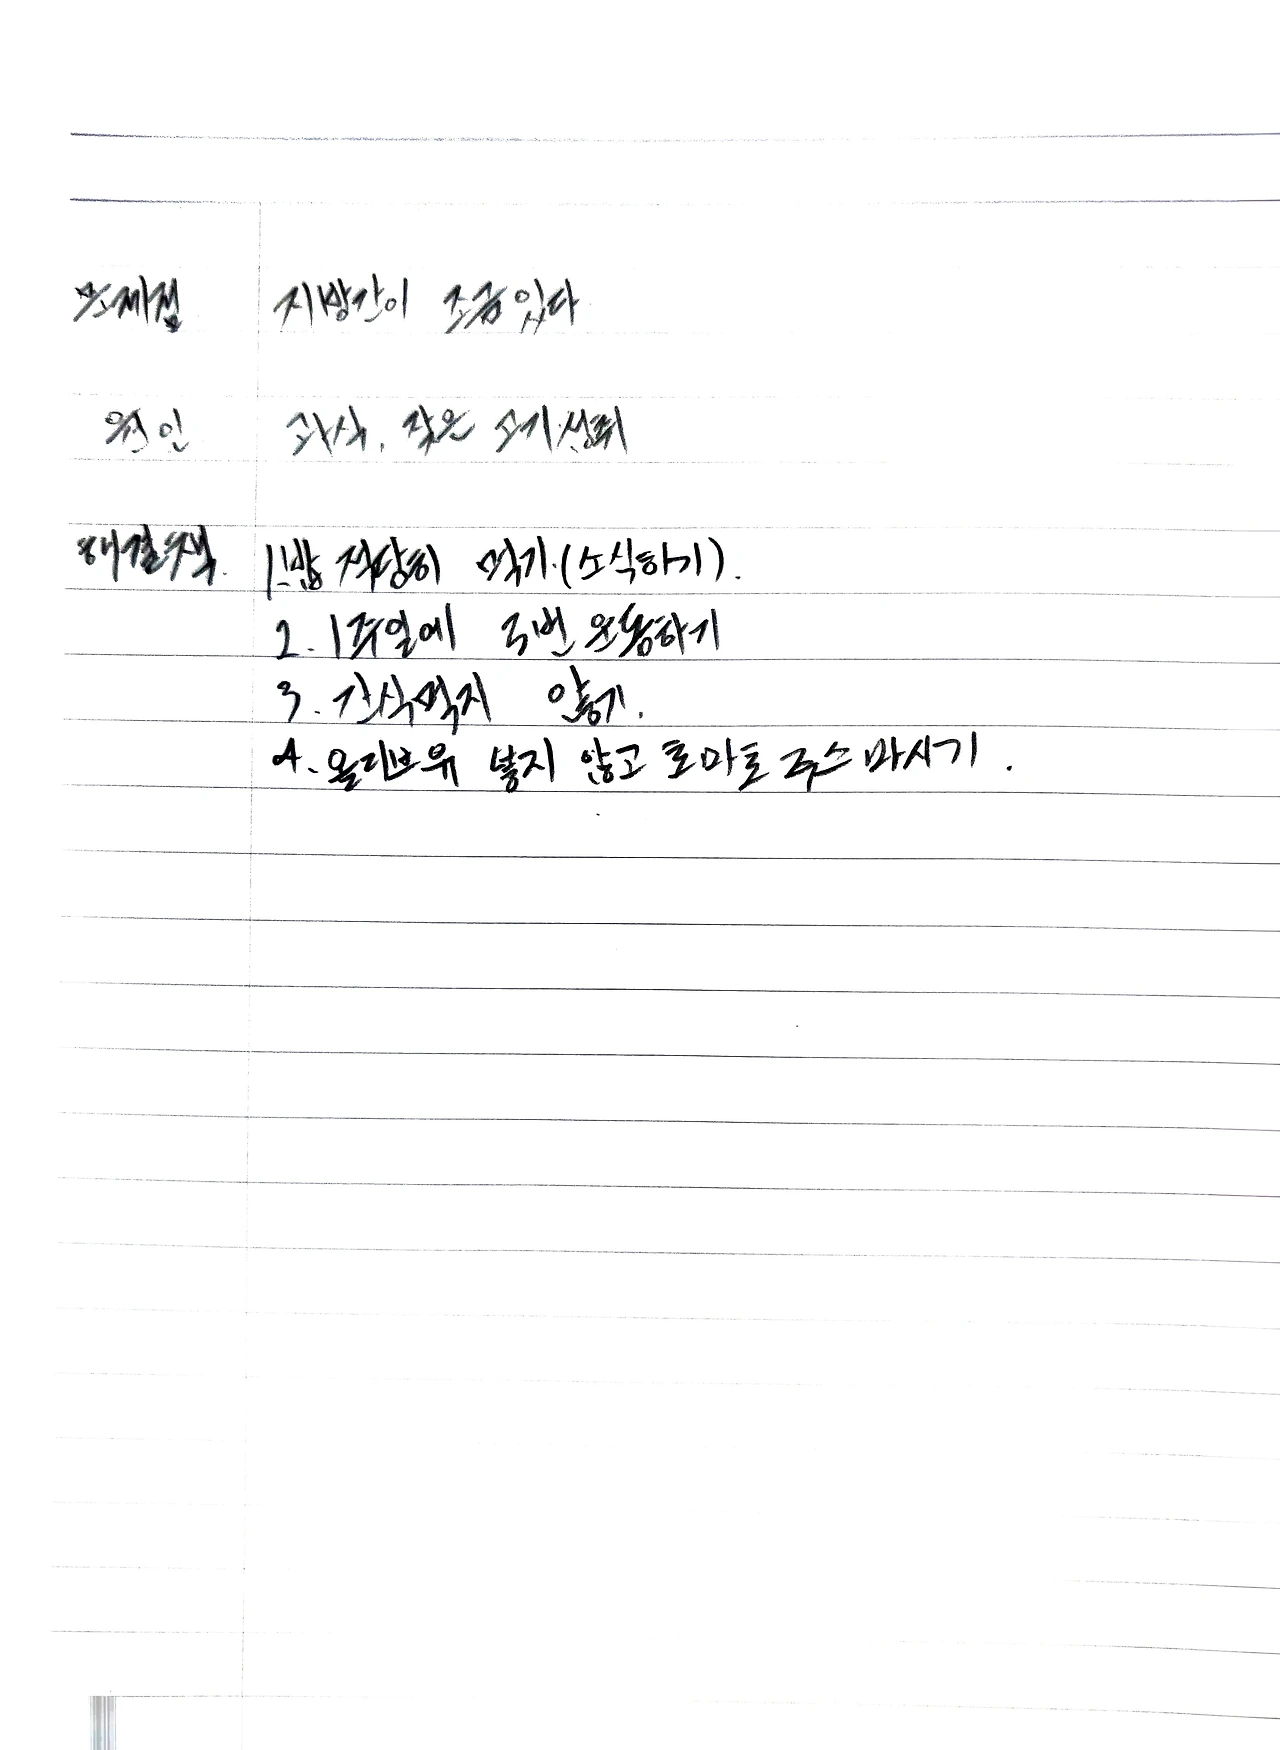 문제점 지방간이 조금있다
원인 과식, 잦은 고기섭취
해결책. 1.밥 적당히 먹기.(소식하기).
2. 1주일에 3번 운동하기
3. 간식먹지 않기.
4. 올리브유 넣지 않고 토마토 주스 마시기.